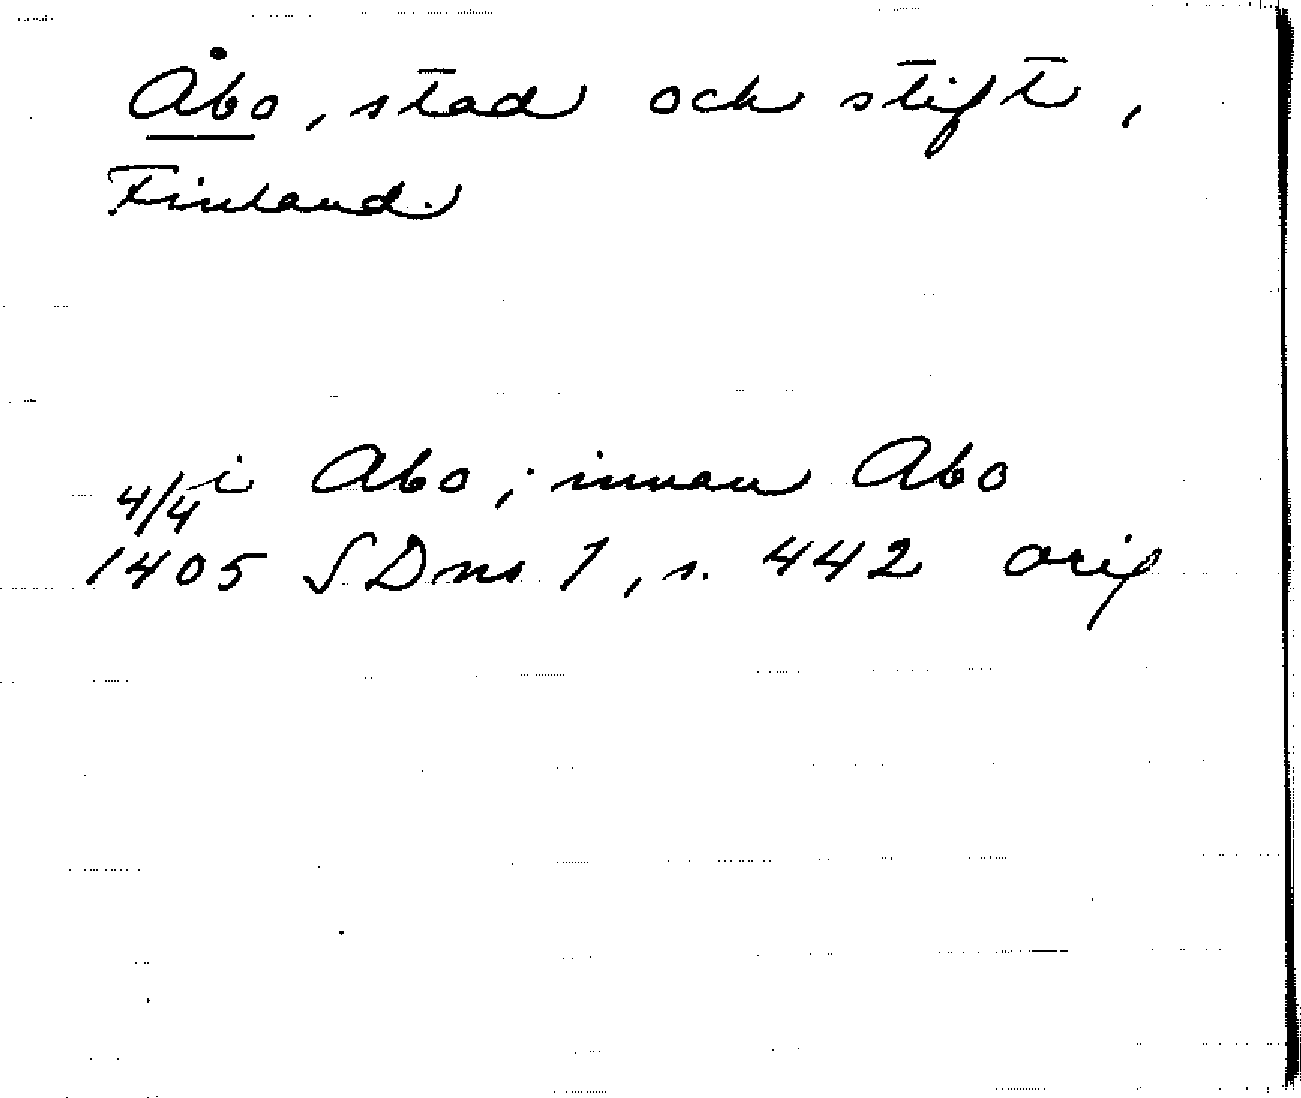 Åbo, stad och stift,
Finland.
4/4 i Abo; innan Abo
1405 SDns 1, s. 442 orig